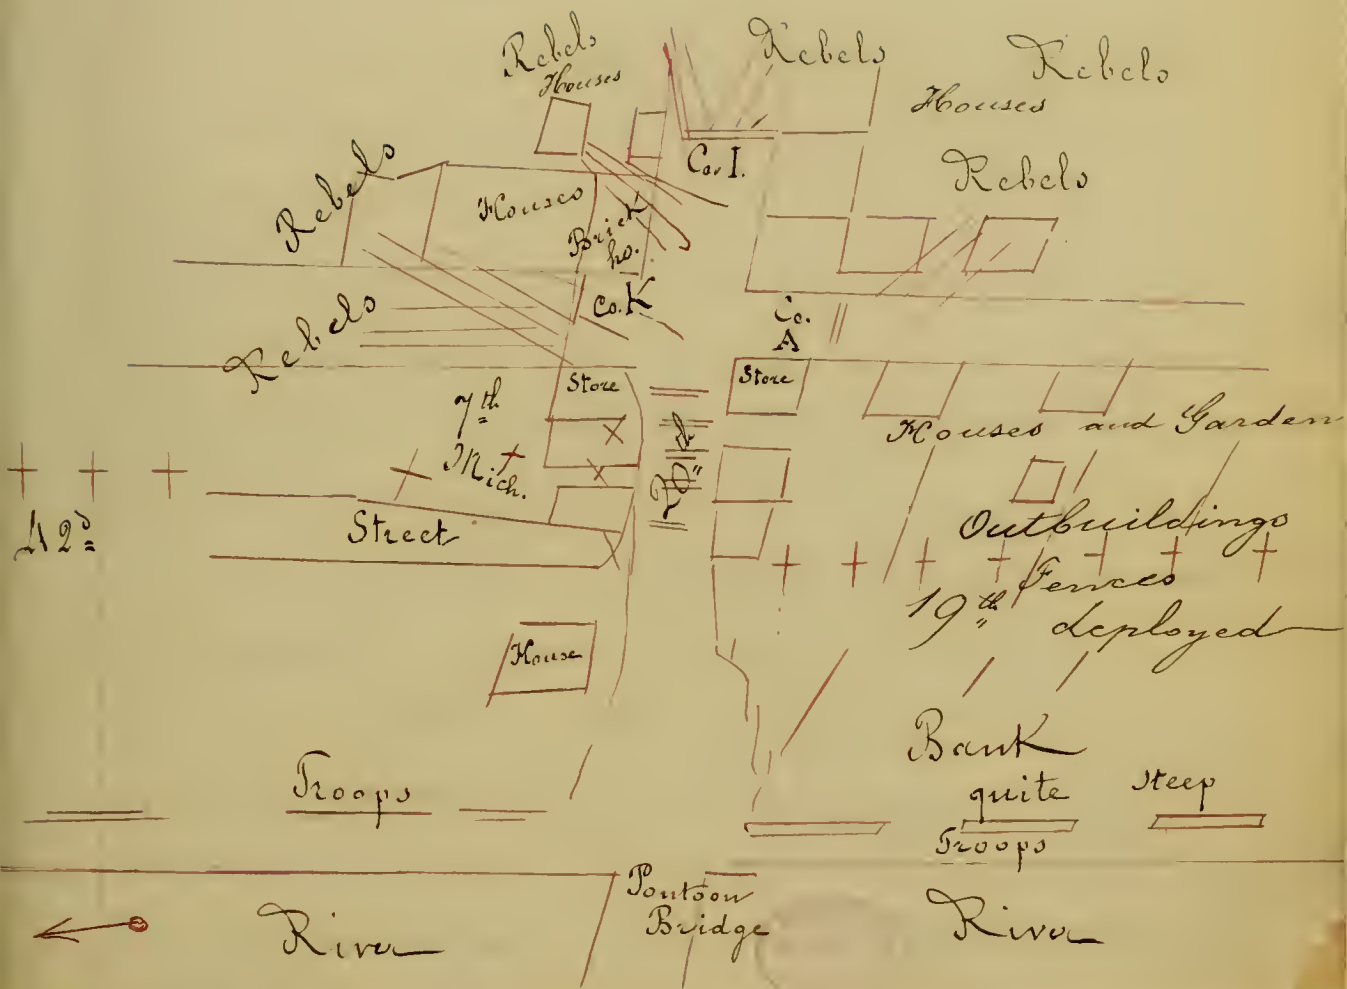 Rebels
Houses
Rebels
Rebels
Houses
Rebels
Co. I.
Rebels
Houses
Brick
ho.
Co. K
Co.
A
Rebels
Store
Store
7th
Mich.
20th
Houses and Garden
42d
Street
Outbuildings
Fences
19th deployed
House
Bank
quite steep
Troops
Troops
Pontoon
Bridge
River
River